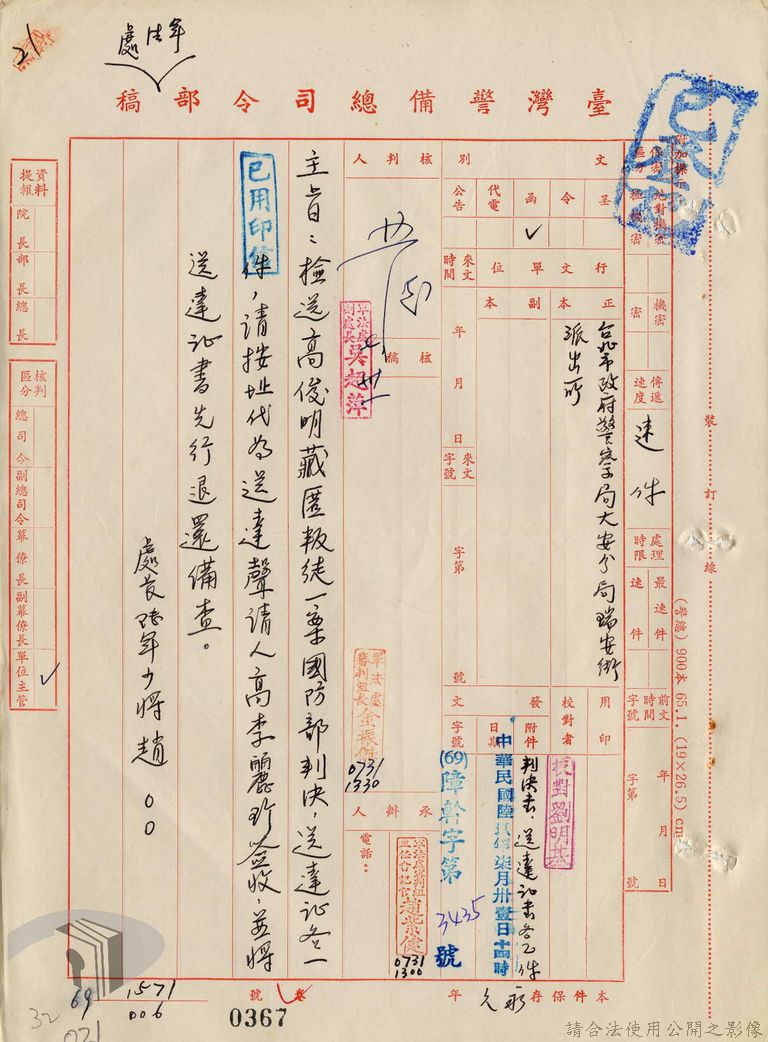 軍法處
21
臺灣警備總司令部稿
附加標
保密區分
絕對機密
極機密
機密
密
傳遞速度
速件
處理時限
最速件
速件
前文時間字號
年月日
字第
號
裝訂線
(警總) 900本 65.1. (19×26.5) cm
文別
呈
令
函
✓
代電
公告
行文單位
正本
副本
台北市政府警察局大安分局瑞安街
派出所
來文時間
年
月
日
來文字號
字第
號
用印
校對者
校對劉明基
發文
附件
判決書、送達証書各乙件
日期
中華民國陸玖年柒月卅壹日十四時
字號
(69)障幹字第3435號
核判人
核稿
軍法處副處長吳超萍
軍法處審判組長金振
0731
1330
承辦人
電話：
趙榮健
0731
1300
主旨：檢送高俊明藏匿叛徒一案國防部判決，送達証各一
件，請按址代為送達聲請人高李麗珍簽收，並將
送達証書先行退還備查。
已用印信
處長 少將趙○○
資料提報
院長
部長
總長
核判區分
總司令
副總司令
幕僚長
副幕僚長
單位主管
✓
本件保存
永久
年
卷號
0367
1571
006
69
32
021
請合法使用公開之影像